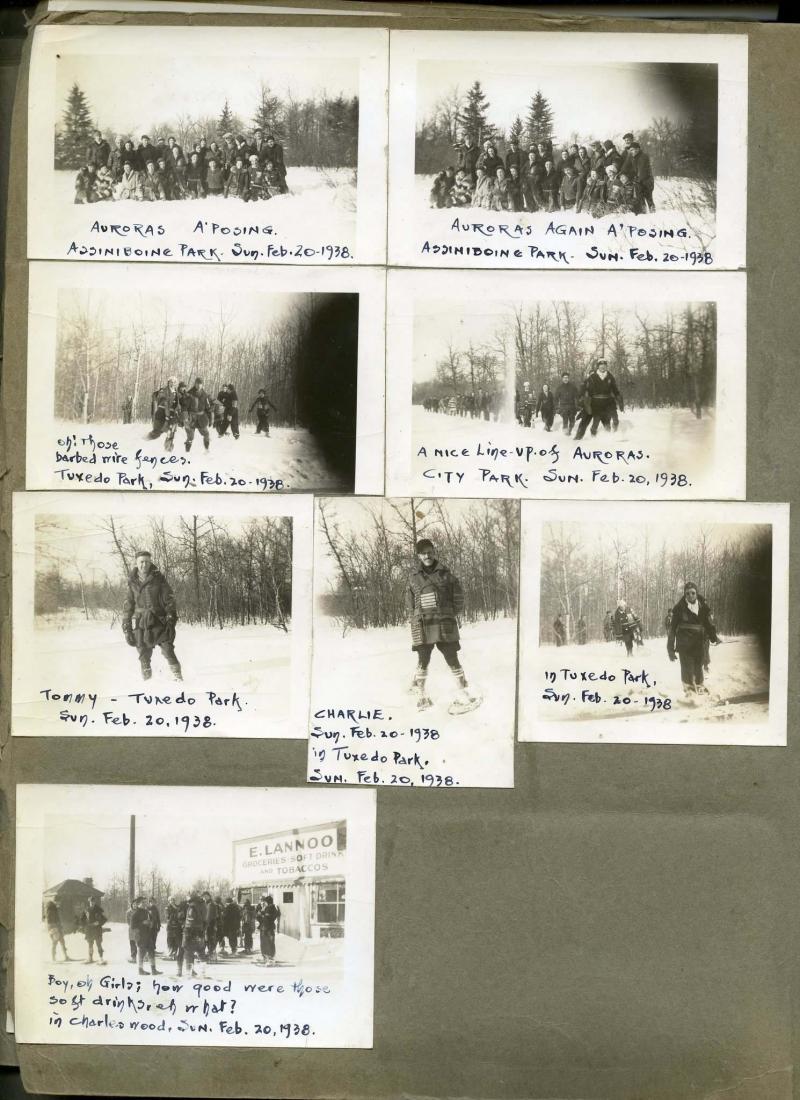 AURORAS A'POSING.
ASSINIBOINE PARK. Sun. Feb. 20-1938.
AURORAS AGAIN A'POSING.
ASSINIBOINE PARK. SUN. FEB. 20-1938
oh! Those
barbed wire fences.
Tuxedo Park, Sun. Feb. 20-1938.
A NICE LINE-UP. of AURORAS.
CITY PARK. SUN. FEB. 20, 1938.
Tommy - Tuxedo Park.
Sun. Feb. 20, 1938.
CHARLIE.
Sun. Feb. 20-1938
in Tuxedo Park.
SUN. Feb. 20, 1938.
in Tuxedo Park,
Sun. Feb. 20-1938
E. LANNOO
GROCERIES-SOFT DRINK
AND TOBACCOS
Boy, oh Girls; how good were those
soft drinks, eh what?
in Charleswood, SUN. Feb. 20, 1938.